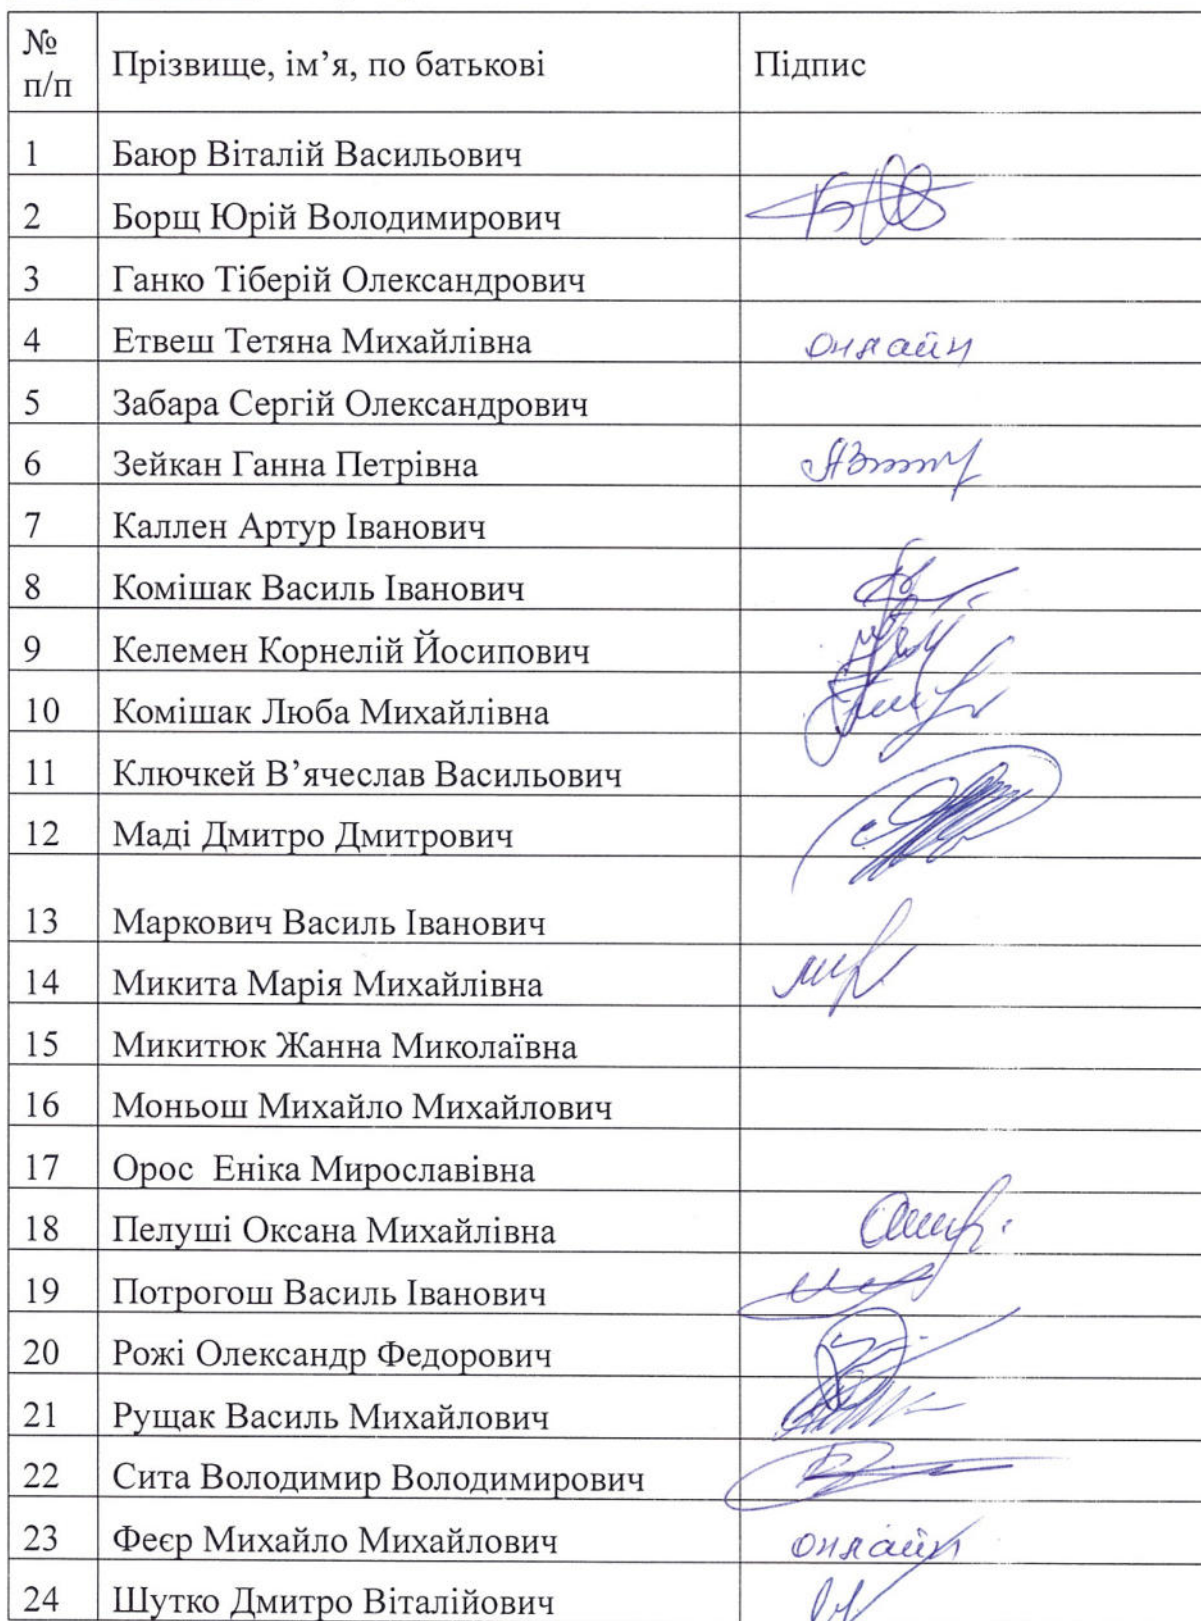 № п/п Прізвище, ім’я, по батькові Підпис
1 Баюр Віталій Васильович
2 Борщ Юрій Володимирович
3 Ганко Тіберій Олександрович
4 Етвеш Тетяна Михайлівна онлайн
5 Забара Сергій Олександрович
6 Зейкан Ганна Петрівна
7 Каллен Артур Іванович
8 Комішак Василь Іванович
9 Келемен Корнелій Йосипович
10 Комішак Люба Михайлівна
11 Ключкей В’ячеслав Васильович
12 Маді Дмитро Дмитрович
13 Маркович Василь Іванович
14 Микита Марія Михайлівна
15 Микитюк Жанна Миколаївна
16 Моньош Михайло Михайлович
17 Орос Еніка Мирославівна
18 Пелуші Оксана Михайлівна
19 Потрогош Василь Іванович
20 Рожі Олександр Федорович
21 Рущак Василь Михайлович
22 Сита Володимир Володимирович
23 Феєр Михайло Михайлович онлайн
24 Шутко Дмитро Віталійович